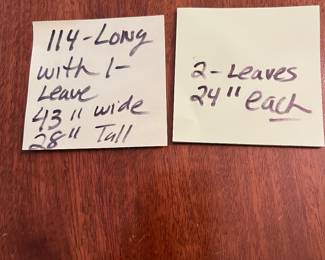 114-Long
with 1-
Leave
43" wide
28" Tall
2-Leaves
24" each